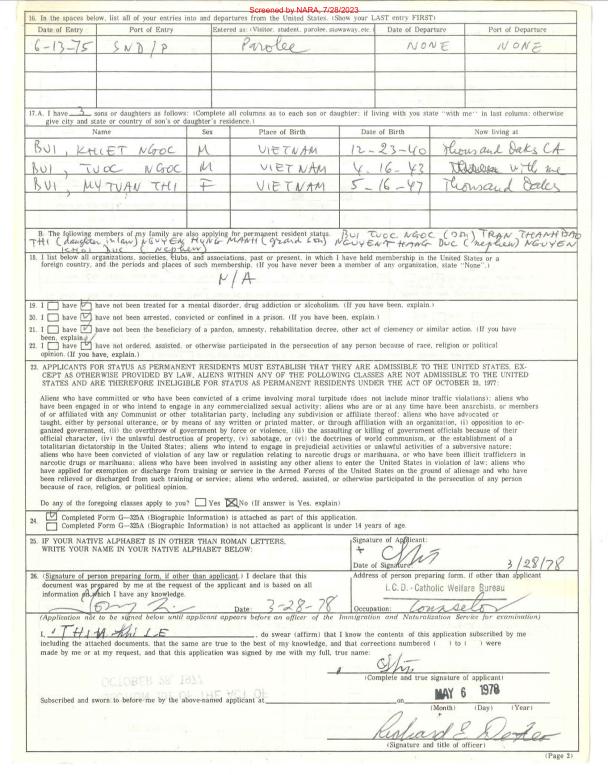 Screened by NARA, 7/28/2023
16. In the spaces below, list all of your entries into and departures from the United States. (Show your LAST entry FIRST)
Date of Entry Port of Entry Entered as: (Visitor, student, parolee, stowaway, etc.) Date of Departure Port of Departure
6-13-75 SND/P Parolee NONE NONE
17.A. I have 3 sons or daughters as follows: (Complete all columns as to each son or daughter; if living with you state "with me" in last column; otherwise
give city and state or country of son's or daughter's residence.)
Name Sex Place of Birth Date of Birth Now living at
BUI, KHIET NGOC M VIETNAM 12-23-40 Thousand Oaks CA
BUI, TUOC NGOC M VIETNAM 4.16-43 with me
BUI, MY TUAN THI F VIETNAM 5-16-47 Thousand Oaks
B. The following members of my family are also applying for permanent resident status. BUI TUOC NGOC (son) TRAN THANH DAO
THI (daughter in law) NGUYEN HUNG MANH (grand son) NGUYEN THANG DUC (nephew) NGUYEN
KHOI DUC (nephew)
18. I list below all organizations, societies, clubs, and associations, past or present, in which I have held membership in the United States or a
foreign country, and the periods and places of such membership. (If you have never been a member of any organization, state "None".)
N/A
19. I have have not been treated for a mental disorder, drug addiction or alcoholism. (If you have been, explain.)
20. I have have not been arrested, convicted or confined in a prison. (If you have been, explain.)
21. I have have not been the beneficiary of a pardon, amnesty, rehabilitation decree, other act of clemency or similar action. (If you have
been, explain.)
22. I have have not ordered, assisted, or otherwise participated in the persecution of any person because of race, religion or political
opinion. (If you have, explain.)
23. APPLICANTS FOR STATUS AS PERMANENT RESIDENTS MUST ESTABLISH THAT THEY ARE ADMISSIBLE TO THE UNITED STATES. EX-
CEPT AS OTHERWISE PROVIDED BY LAW, ALIENS WITHIN ANY OF THE FOLLOWING CLASSES ARE NOT ADMISSIBLE TO THE UNITED
STATES AND ARE THEREFORE INELIGIBLE FOR STATUS AS PERMANENT RESIDENTS UNDER THE ACT OF OCTOBER 28, 1977:
Aliens who have committed or who have been convicted of a crime involving moral turpitude (does not include minor traffic violations); aliens who
have been engaged in or who intend to engage in any commercialized sexual activity; aliens who are or at any time have been anarchists, or members
of or affiliated with any Communist or other totalitarian party, including any subdivision or affiliate thereof; aliens who have advocated or
taught, either by personal utterance, or by means of any written or printed matter, or through affiliation with an organization, (i) opposition to or-
ganized government, (ii) the overthrow of government by force or violence, (iii) the assaulting or killing of government officials because of their
official character, (iv) the unlawful destruction of property, (v) sabotage, or (vi) the doctrines of world communism, or the establishment of a
totalitarian dictatorship in the United States; aliens who intend to engage in prejudicial activities or unlawful activities of a subversive nature;
aliens who have been convicted of violation of any law or regulation relating to narcotic drugs or marihuana, or who have been illicit traffickers in
narcotic drugs or marihuana; aliens who have been involved in assisting any other aliens to enter the United States in violation of law; aliens who
have applied for exemption or discharge from training or service in the Armed Forces of the United States on the ground of alienage and who have
been relieved or discharged from such training or service; aliens who ordered, assisted, or otherwise participated in the persecution of any person
because of race, religion, or political opinion.
Do any of the foregoing classes apply to you? Yes No (If answer is Yes, explain)
24. Completed Form G-325A (Biographic Information) is attached as part of this application.
Completed Form G-325A (Biographic Information) is not attached as applicant is under 14 years of age.
25. IF YOUR NATIVE ALPHABET IS IN OTHER THAN ROMAN LETTERS, WRITE YOUR NAME IN YOUR NATIVE ALPHABET BELOW:
Signature of Applicant:
Date of Signature: 3/28/78
26. (Signature of person preparing form, if other than applicant.) I declare that this
document was prepared by me at the request of the applicant and is based on all
information on which I have any knowledge.
Date: 3-28-78
Address of person preparing form, if other than applicant
I.C.D.-Catholic Welfare Bureau
Occupation: Counselor
(Application not to be signed below until applicant appears before an officer of the Immigration and Naturalization Service for examination)
I, THIN KHI LE, do swear (affirm) that I know the contents of this application subscribed by me
including the attached documents, that the same are true to the best of my knowledge, and that corrections numbered ( ) to ( ) were
made by me or at my request, and that this application was signed by me with my full, true name:
(Complete and true signature of applicant)
Subscribed and sworn to before me by the above-named applicant at on MAY 6 1978
(Month) (Day) (Year)
Richard E. Dexter
(Signature and title of officer)
(Page 2)